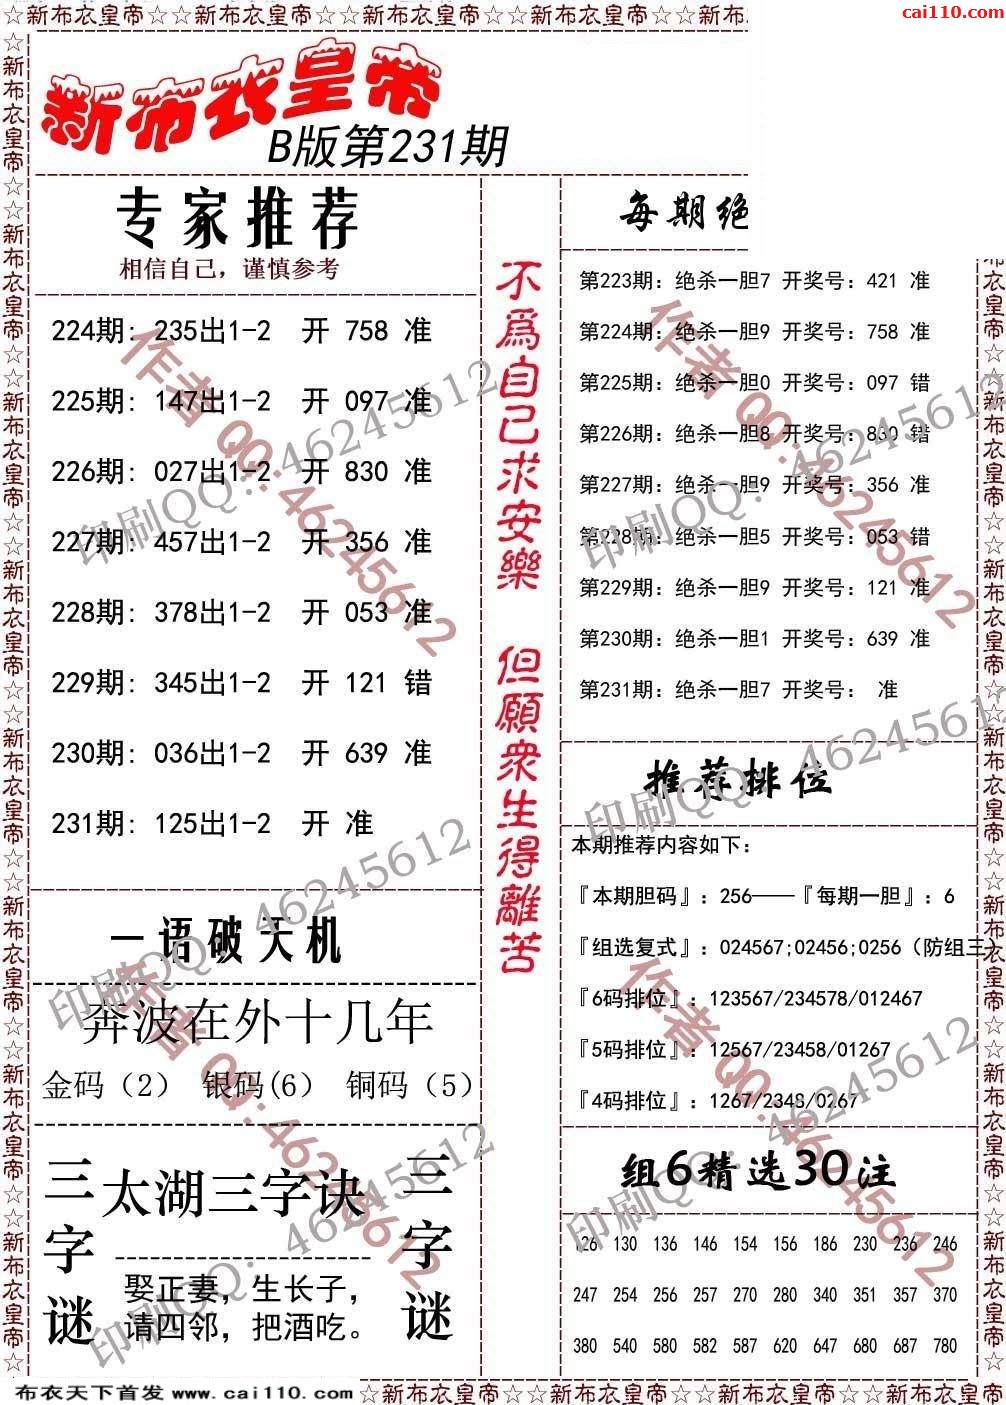 ☆新布衣皇帝☆☆新布衣皇帝☆☆新布衣皇帝☆☆新布衣皇帝☆☆新布
cai110.com
新布衣皇帝
B版第231期
专家推荐
相信自己，谨慎参考
224期: 235出1-2 开 758 准
225期: 147出1-2 开 097 准
226期: 027出1-2 开 830 准
227期: 457出1-2 开 356 准
228期: 378出1-2 开 053 准
229期: 345出1-2 开 121 错
230期: 036出1-2 开 639 准
231期: 125出1-2 开 准
一语破天机
奔波在外十几年
金码（2） 银码(6） 铜码（5）
三字谜
太湖三字诀
娶正妻，生长子，
请四邻，把酒吃。
三字谜
不爲自己求安樂 但願衆生得離苦
每期绝
第223期: 绝杀一胆7 开奖号: 421 准
第224期: 绝杀一胆9 开奖号: 758 准
第225期: 绝杀一胆0 开奖号: 097 错
第226期: 绝杀一胆8 开奖号: 830 错
第227期: 绝杀一胆9 开奖号: 356 准
第228期: 绝杀一胆5 开奖号: 053 错
第229期: 绝杀一胆9 开奖号: 121 准
第230期: 绝杀一胆1 开奖号: 639 准
第231期: 绝杀一胆7 开奖号: 准
推荐排位
本期推荐内容如下:
『本期胆码』: 256——『每期一胆』: 6
『组选复式』: 024567;02456;0256（防组三）
『6码排位』: 123567/234578/012467
『5码排位』: 12567/23458/01267
『4码排位』: 1267/2348/0267
组6精选30注
126 130 136 146 154 156 186 230 236 246
247 254 256 257 270 280 340 351 357 370
380 540 580 582 587 620 647 680 687 780
作者 QQ:46245612
印刷QQ: 46245612
作者 QQ:46245612
印刷QQ: 46245612
印刷QQ: 46245612
作者 QQ:46245612
印刷QQ: 46245612
印刷QQ: 46245612
作者 QQ:46245612
印刷QQ: 46245612
布衣天下首发 www.cai110.com
☆新布衣皇帝☆☆新布衣皇帝☆☆新布衣皇帝☆☆新布衣皇帝☆